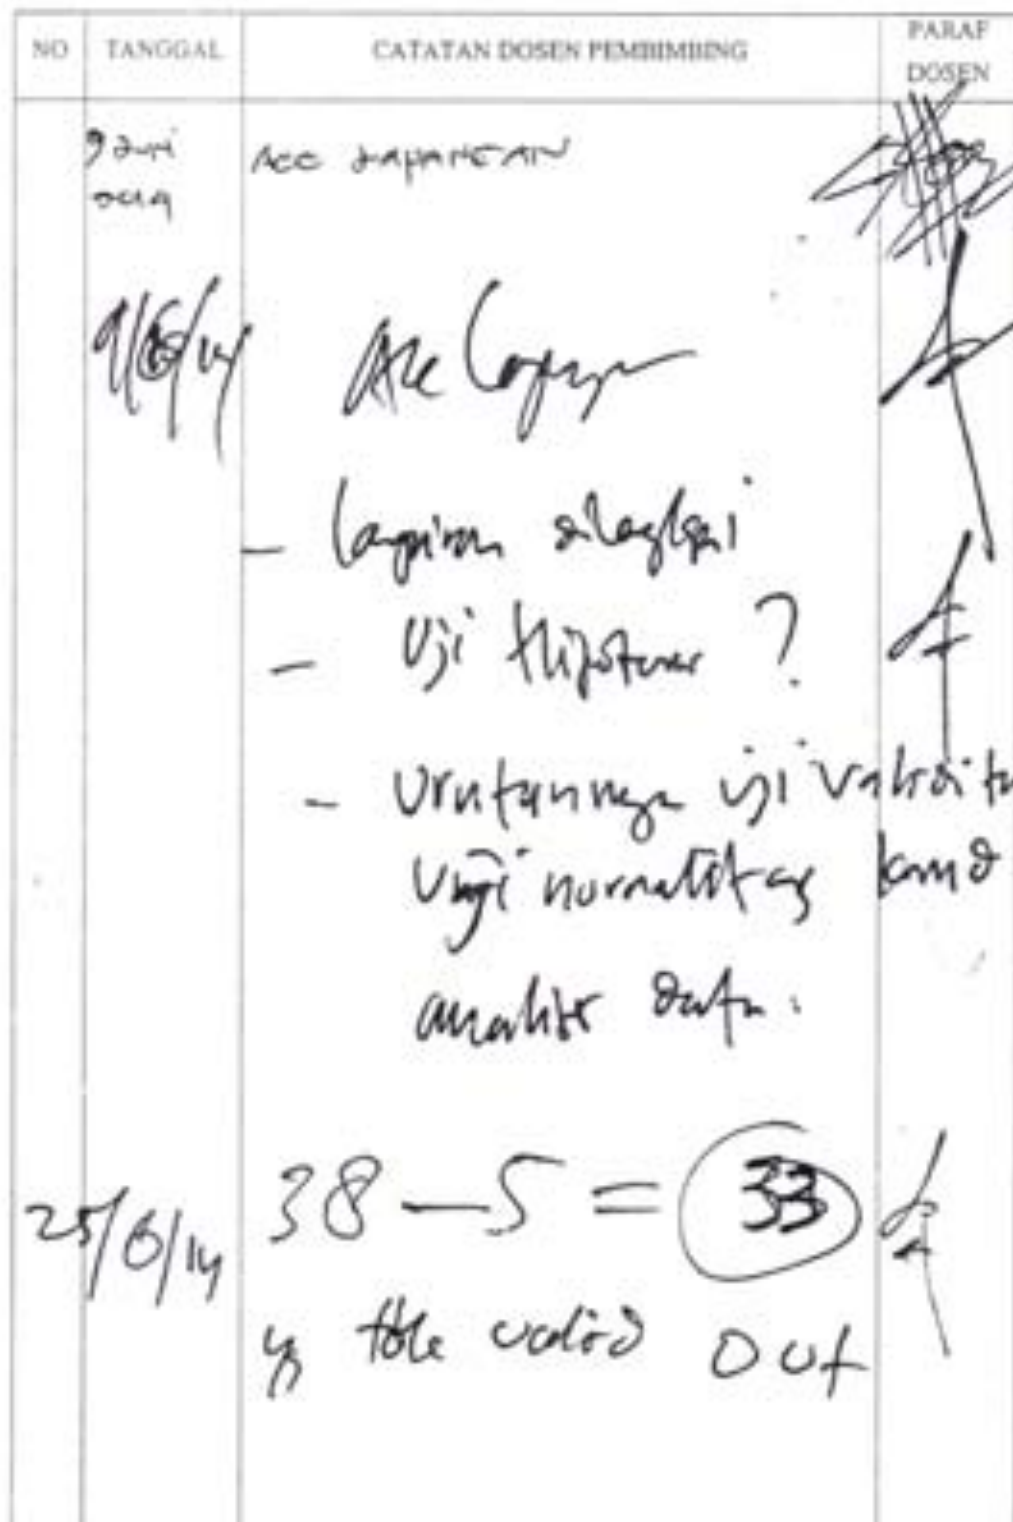 NO TANGGAL CATATAN DOSEN PEMBIMBING PARAF DOSEN
9 Juni ACC LAPANGAN
9/6/14 Acc Lapangan
- Lampiran dilengkapi
- Uji Hipotesis ?
- Urutannya uji validita
uji normalitas kmd
analisis data.
25/6/14 38 - 5 = 33
yg tdk valid out